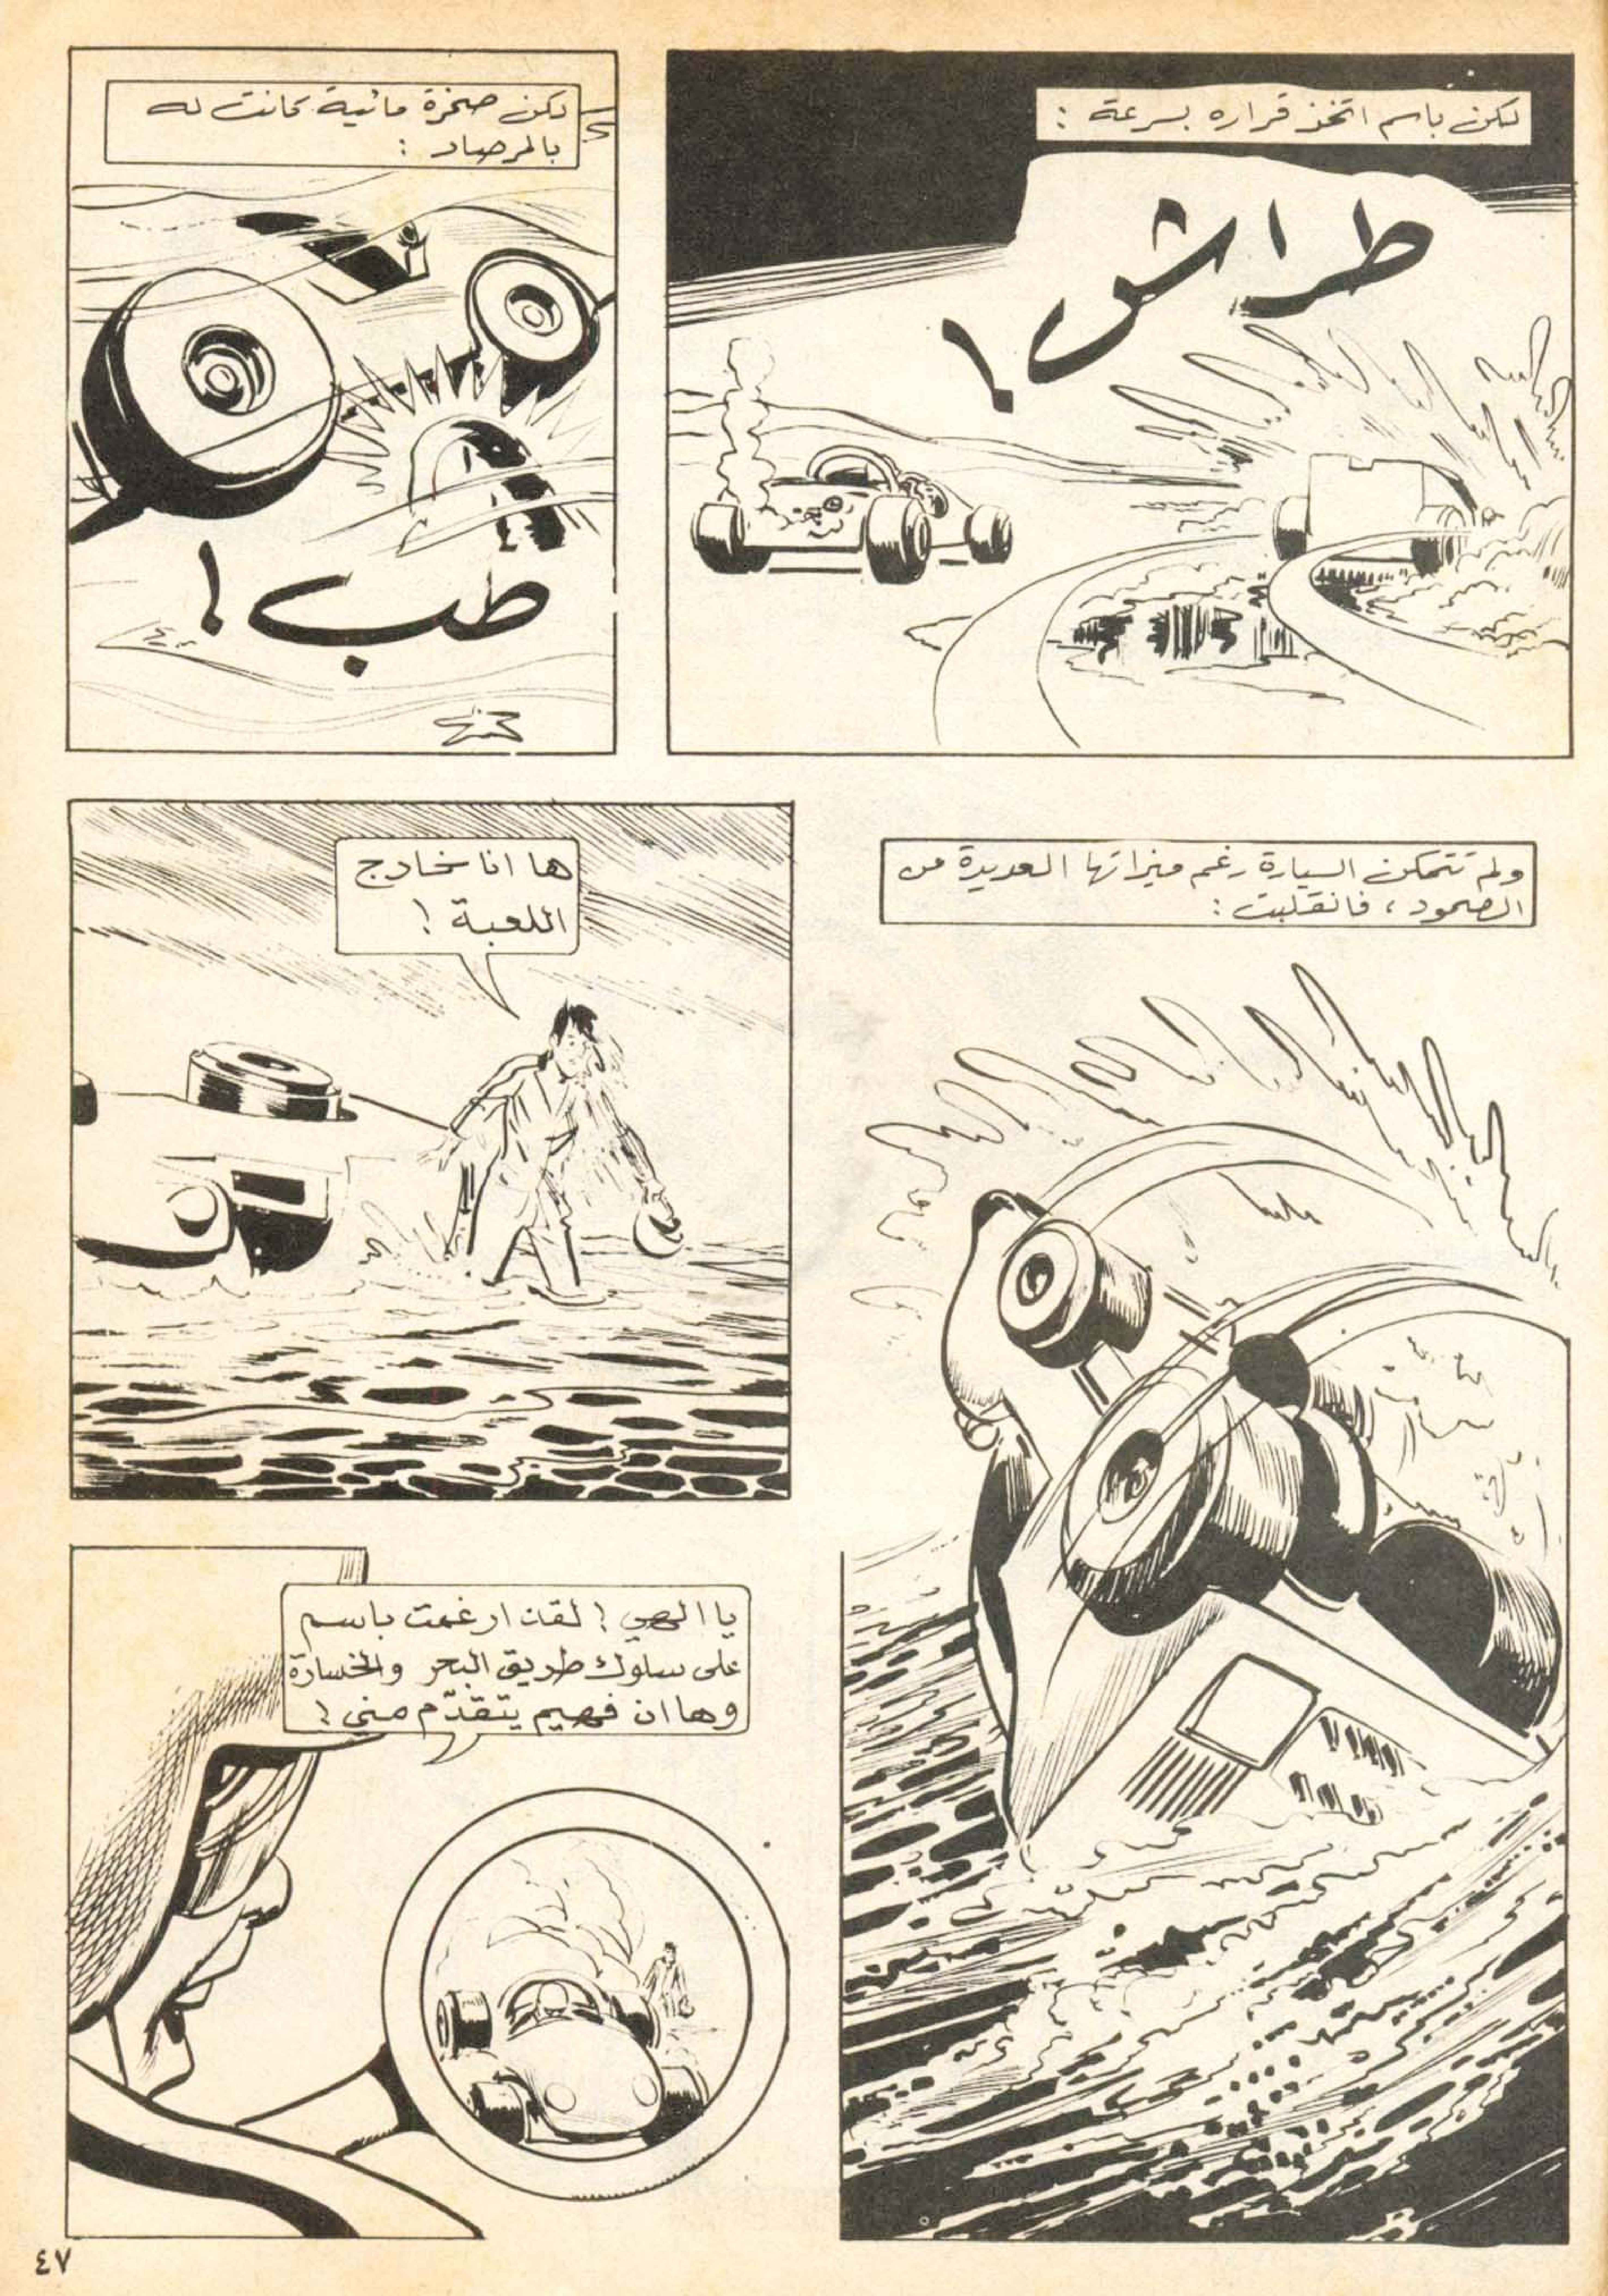 لكن باسم اتخذ قراره بسرعة :
طراش !
لكن صخرة مائية كانت له
بالمرصاد :
طب !
ولم تتمكن السيارة رغم ميزاتها العديدة من
الصمود ، فانقلبت :
ها انا خارج
اللعبة !
يا الهي ! لقد ارغمت باسم
على سلوك طريق البحر والخسارة
وها ان فهيم يتقدّم مني !
٤٧